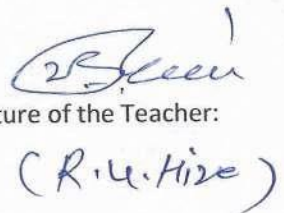 ture of the Teacher:
(R.U.Hire)